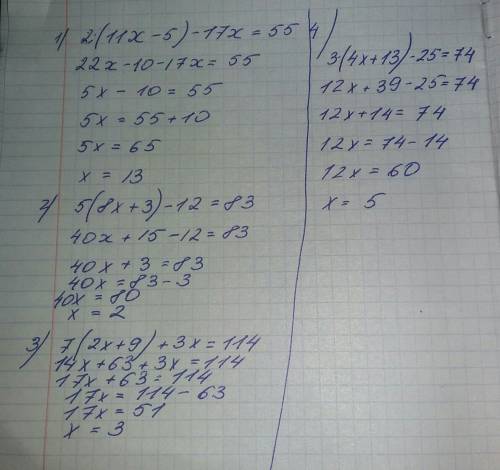 1) 2(11x-5)-17x=55
22x-10-17x=55
5x-10=55
5x=55+10
5x=65
x=13
2) 5(8x+3)-12=83
40x+15-12=83
40x+3=83
40x=83-3
40x=80
x=2
3) 7(2x+9)+3x=114
14x+63+3x=114
17x+63=114
17x=114-63
17x=51
x=3
4) 3(4x+13)-25=74
12x+39-25=74
12x+14=74
12x=74-14
12x=60
x=5